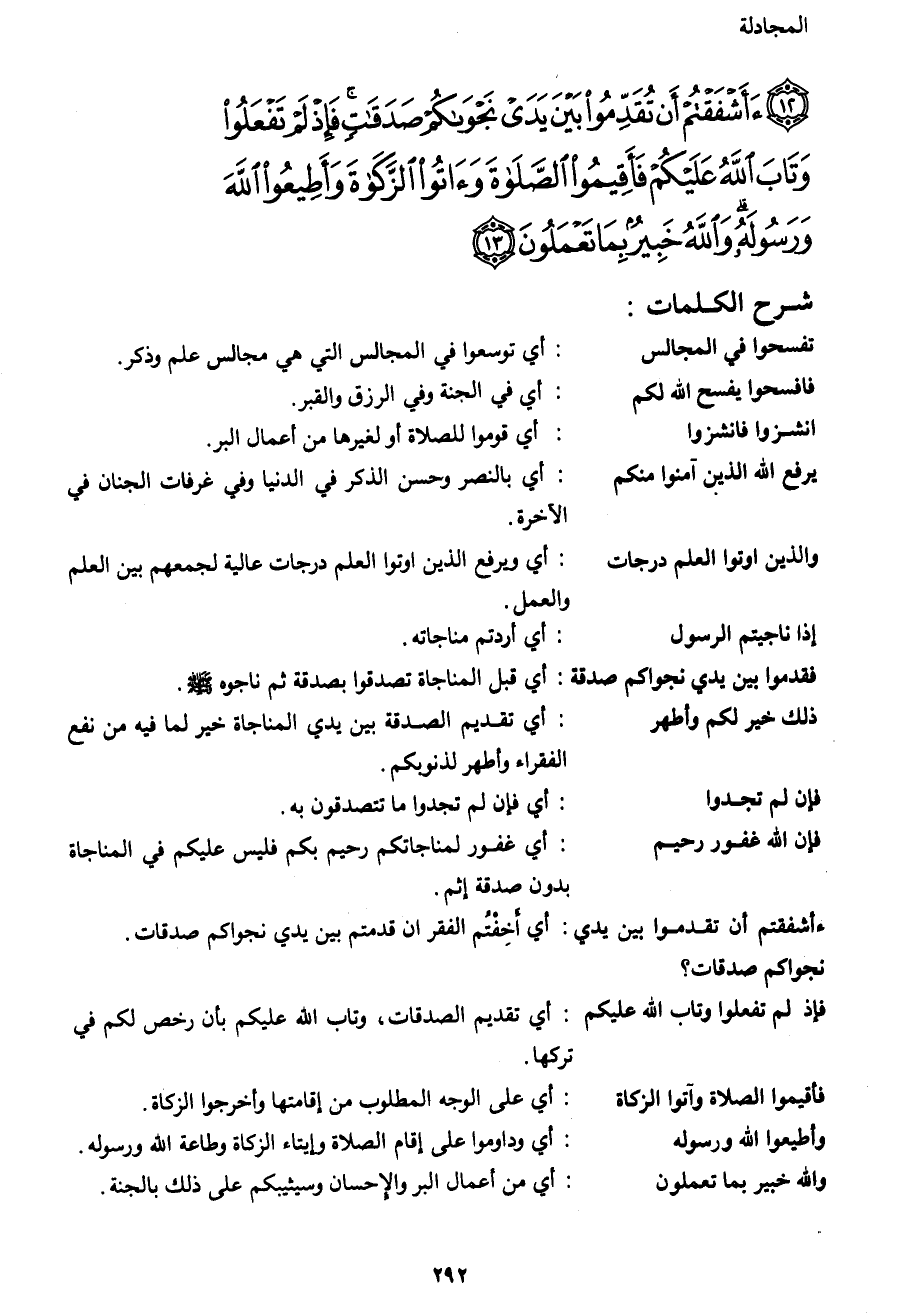 المجادلة
۝١٢ ءَأَشْفَقْتُمْ أَن تُقَدِّمُوا۟ بَيْنَ يَدَىْ نَجْوَىٰكُمْ صَدَقَٰتٍ ۚ فَإِذْ لَمْ تَفْعَلُوا۟
وَتَابَ ٱللَّهُ عَلَيْكُمْ فَأَقِيمُوا۟ ٱلصَّلَوٰةَ وَءَاتُوا۟ ٱلزَّكَوٰةَ وَأَطِيعُوا۟ ٱللَّهَ
وَرَسُولَهُۥ ۚ وَٱللَّهُ خَبِيرٌۢ بِمَا تَعْمَلُونَ ۝١٣
شرح الكلمات :
تفسحوا في المجالس : أي توسعوا في المجالس التي هي مجالس علم وذكر.
فافسحوا يفسح الله لكم : أي في الجنة وفي الرزق والقبر.
انشزوا فانشزوا : أي قوموا للصلاة أو لغيرها من أعمال البر.
يرفع الله الذين آمنوا منكم : أي بالنصر وحسن الذكر في الدنيا وفي غرفات الجنان في
الآخرة.
والذين اوتوا العلم درجات : أي ويرفع الذين اوتوا العلم درجات عالية لجمعهم بين العلم
والعمل.
إذا ناجيتم الرسول : أي أردتم مناجاته.
فقدموا بين يدي نجواكم صدقة : أي قبل المناجاة تصدقوا بصدقة ثم ناجوه ﷺ.
ذلك خير لكم وأطهر : أي تقديم الصدقة بين يدي المناجاة خير لما فيه من نفع
الفقراء وأطهر لذنوبكم.
فإن لم تجدوا : أي فإن لم تجدوا ما تتصدقون به.
فإن الله غفور رحيم : أي غفور لمناجاتكم رحيم بكم فليس عليكم في المناجاة
بدون صدقة إثم.
ءأشفقتم أن تقدموا بين يدي : أي أَخِفْتُم الفقر ان قدمتم بين يدي نجواكم صدقات.
نجواكم صدقات؟
فإذ لم تفعلوا وتاب الله عليكم : أي تقديم الصدقات، وتاب الله عليكم بأن رخص لكم في
تركها.
فأقيموا الصلاة وآتوا الزكاة : أي على الوجه المطلوب من إقامتها وأخرجوا الزكاة.
وأطيعوا الله ورسوله : أي وداوموا على إقام الصلاة وإيتاء الزكاة وطاعة الله ورسوله.
والله خبير بما تعملون : أي من أعمال البر والإحسان وسيثيبكم على ذلك بالجنة.
٢٩٢